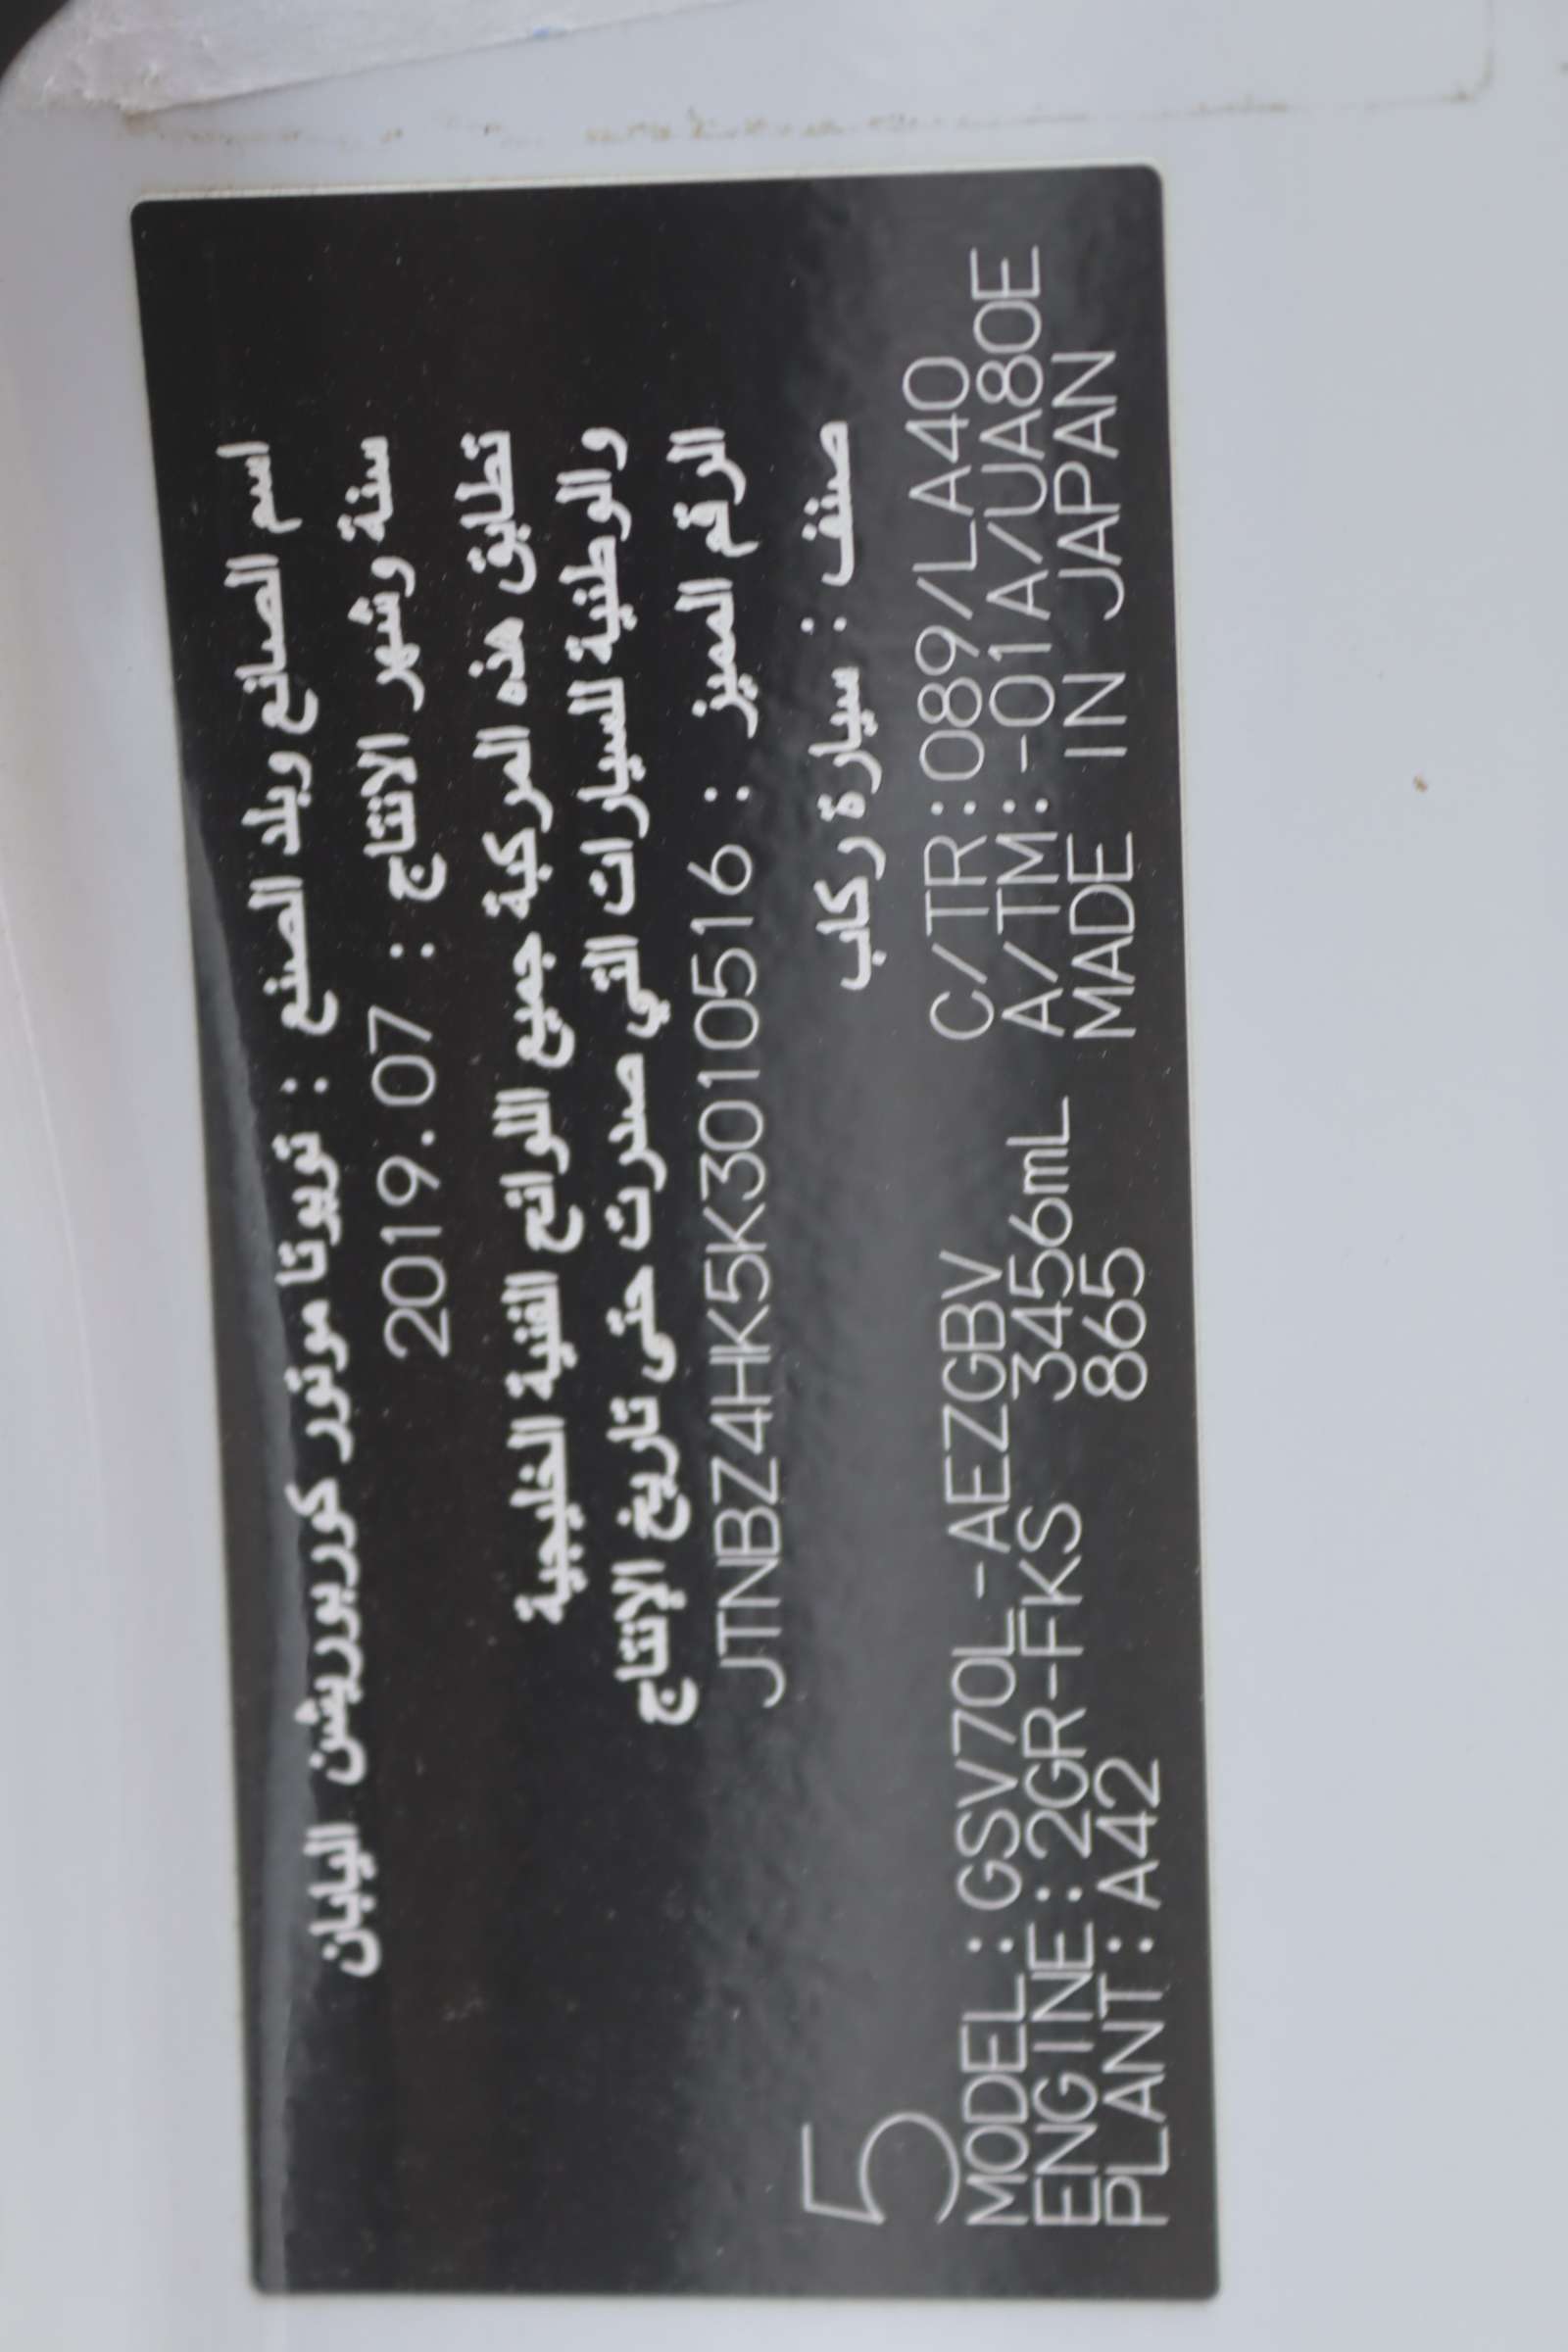 اسم الصانع وبلد الصنع : تويوتا موتور كوربوريشن اليابان
سنة وشهر الانتاج : 2019.07
تطابق هذه المركبة جميع اللوائح الفنية الخليجية
والوطنية للسيارات التي صدرت حتى تاريخ الإنتاج
الرقم المميز : JTNBZ4HK5K3010516
صنف : سيارة ركاب
5
MODEL:GSV70L-AEZGBV C/TR:089/LA40
ENGINE:2GR-FKS 3456mL A/TM:-01A/UA80E
PLANT:A42 865 MADE IN JAPAN